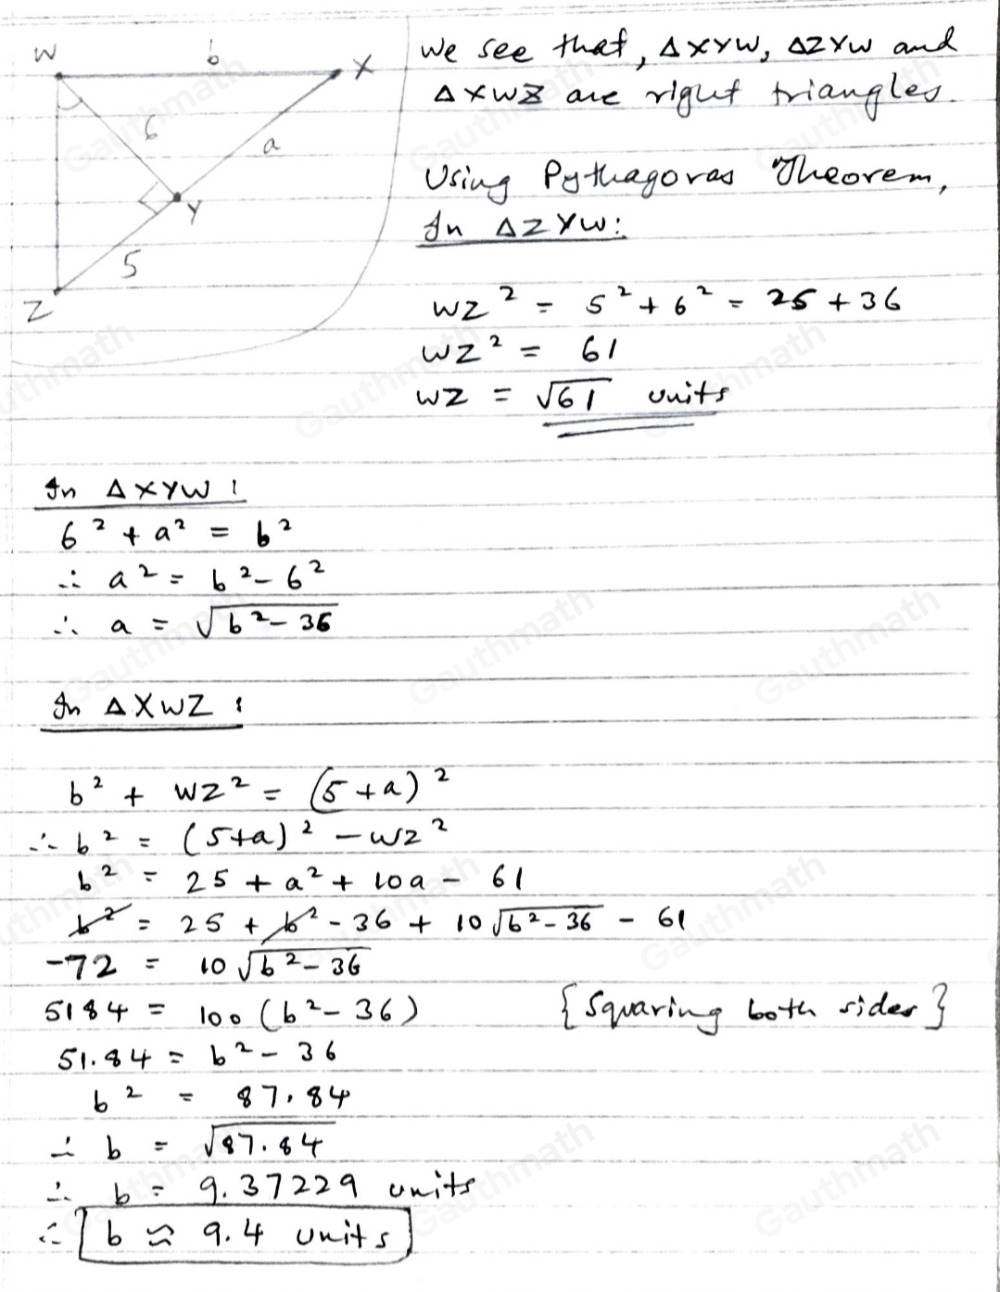 W b X
6
a
Y
5
Z
We see that, ΔXYW, ΔZYW and
ΔXWZ are right triangles.
Using Pythagoras Theorem,
In ΔZYW:
WZ² = 5² + 6² = 25 + 36
WZ² = 61
WZ = √61 units
In ΔXYW :
6² + a² = b²
∴ a² = b² - 6²
∴ a = √(b² - 36)
In ΔXWZ :
b² + WZ² = (5 + a)²
∴ b² = (5+a)² - WZ²
b² = 25 + a² + 10a - 61
b² = 25 + b² - 36 + 10√(b² - 36) - 61
-72 = 10√(b² - 36)
5184 = 100(b² - 36) {Squaring both sides}
51.84 = b² - 36
b² = 87.84
∴ b = √87.84
∴ b = 9.37229 units
∴ b ≈ 9.4 units
Gauthmath